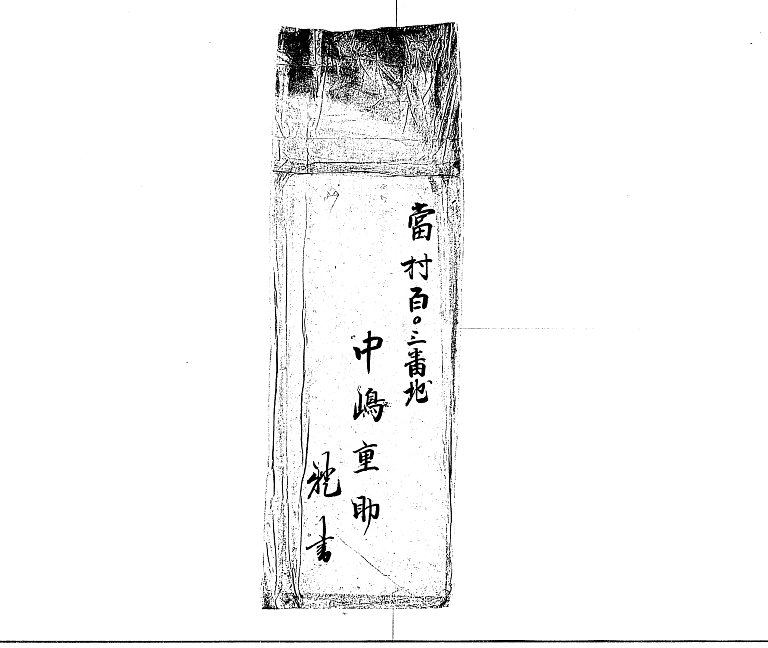 當村百〇三番地
中嶋重助
親書